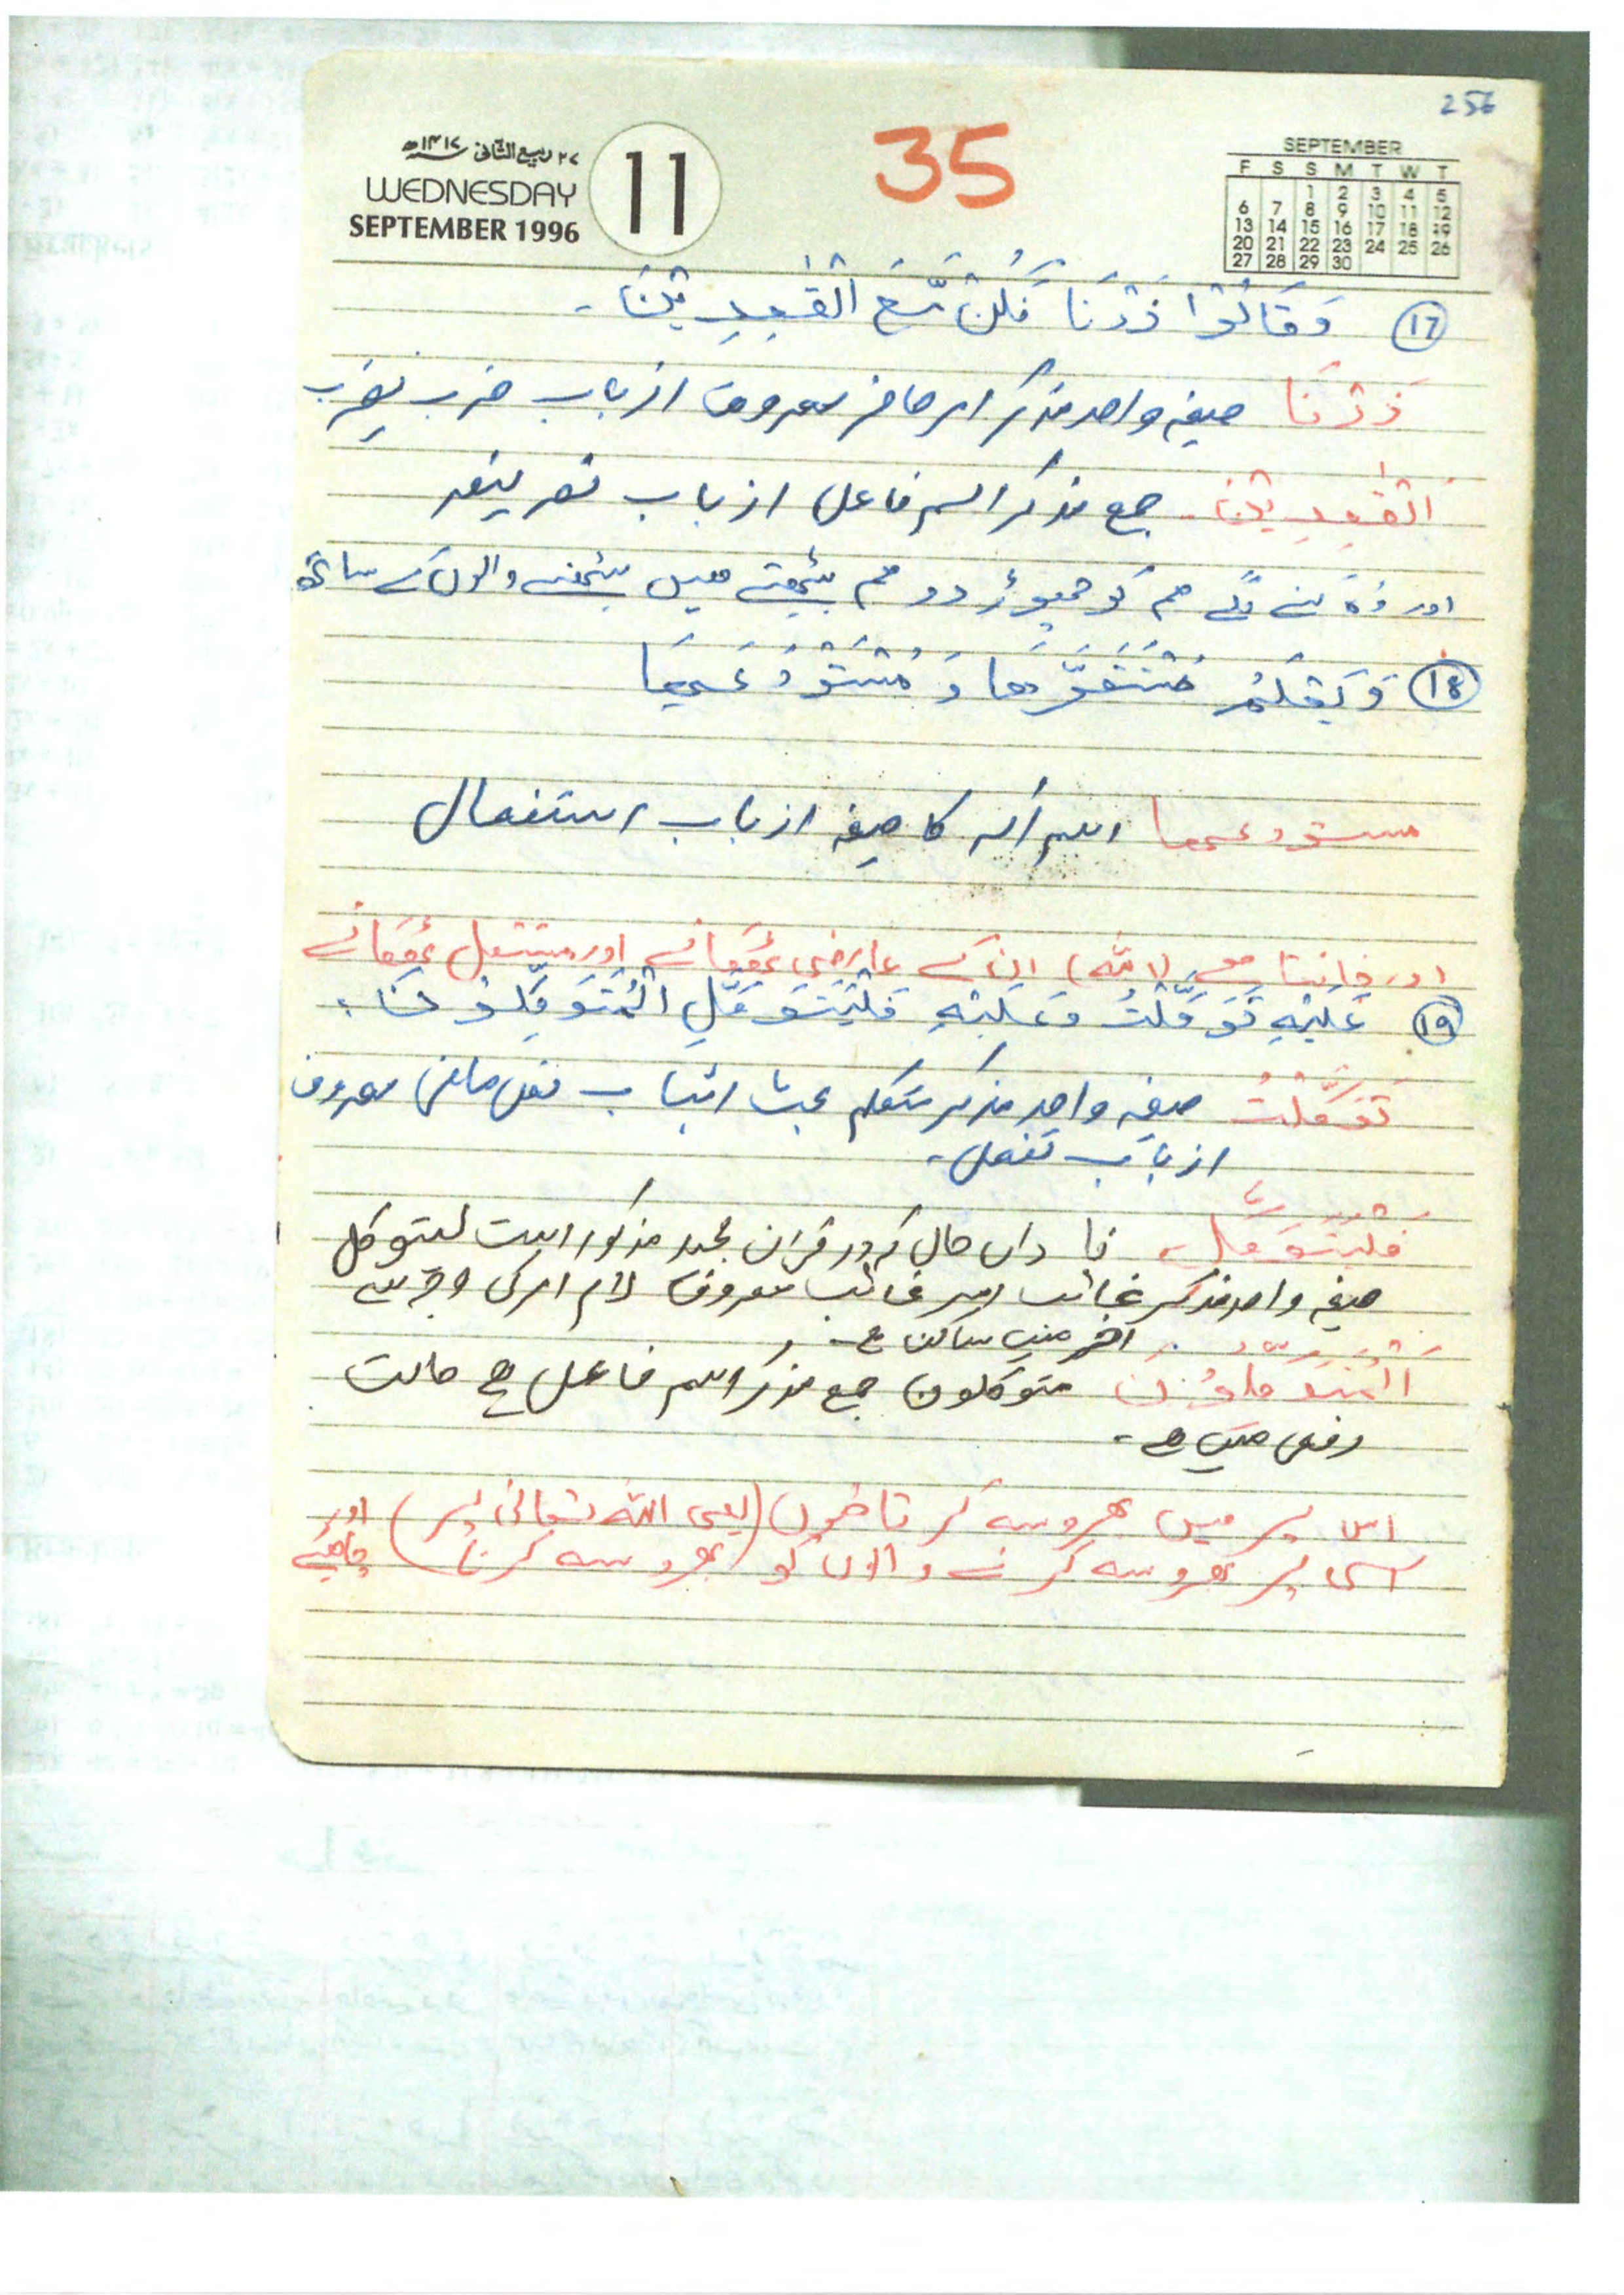 256
35
۲۷ ربیع الثانی ۱۴۱۷ھ
WEDNESDAY
SEPTEMBER 1996
11
SEPTEMBER
F S S M T W T
1 2 3 4 5
6 7 8 9 10 11 12
13 14 15 16 17 18 19
20 21 22 23 24 25 26
27 28 29 30
(17) وَقَالُوْا ذَرْنَا نَكُنْ مَّعَ الْقٰعِدِیْنَ۔
ذَرْنَا صیغہ واحد مذکر امر حاضر معروف از باب ضرب یضرب
الْقٰعِدِیْنَ۔ جمع مذکر اسم فاعل از باب نصر ینصر
اور وہ کہنے لگے ہم کو چھوڑ دو ہم بیٹھتے ہیں بیٹھنے والوں کے ساتھ
(18) وَیَعْلَمُ مُسْتَقَرَّھَا وَ مُسْتَوْدَعَھَا
مستودعھا اسم آلہ کا صیغہ از باب استفعال
اور جانتا ہے (اللہ) ان کے عارضی ٹھکانے اور مستقل ٹھکانے
(19) عَلَیْهِ تَوَکَّلْتُ وَعَلَیْهِ فَلْیَتَوَکَّلِ الْمُتَوَکِّلُوْنَ۔
تَوَکَّلْتُ صیغہ واحد مذکر متکلم بحث اثبات فعل ماضی معروف
از باب تفعل۔
فَلْیَتَوَکَّلِ۔ فا داں حال کہ در قرآن مجید مذکور است لیتوکل
صیغہ واحد مذکر غائب امر غائب معروف لام امر کی وجہ سے
آخر میں ساکن ہے
اَلْمُتَوَکِّلُوْنَ متوکلون جمع مذکر اسم فاعل ہے حالت
رفعی میں ہے۔
اس پر میں بھروسہ کرتا ہوں (یعنی اللہ تعالیٰ پر) اور
اسی پر بھروسہ کرنے والوں کو (بھروسہ کرنا) چاہیئے